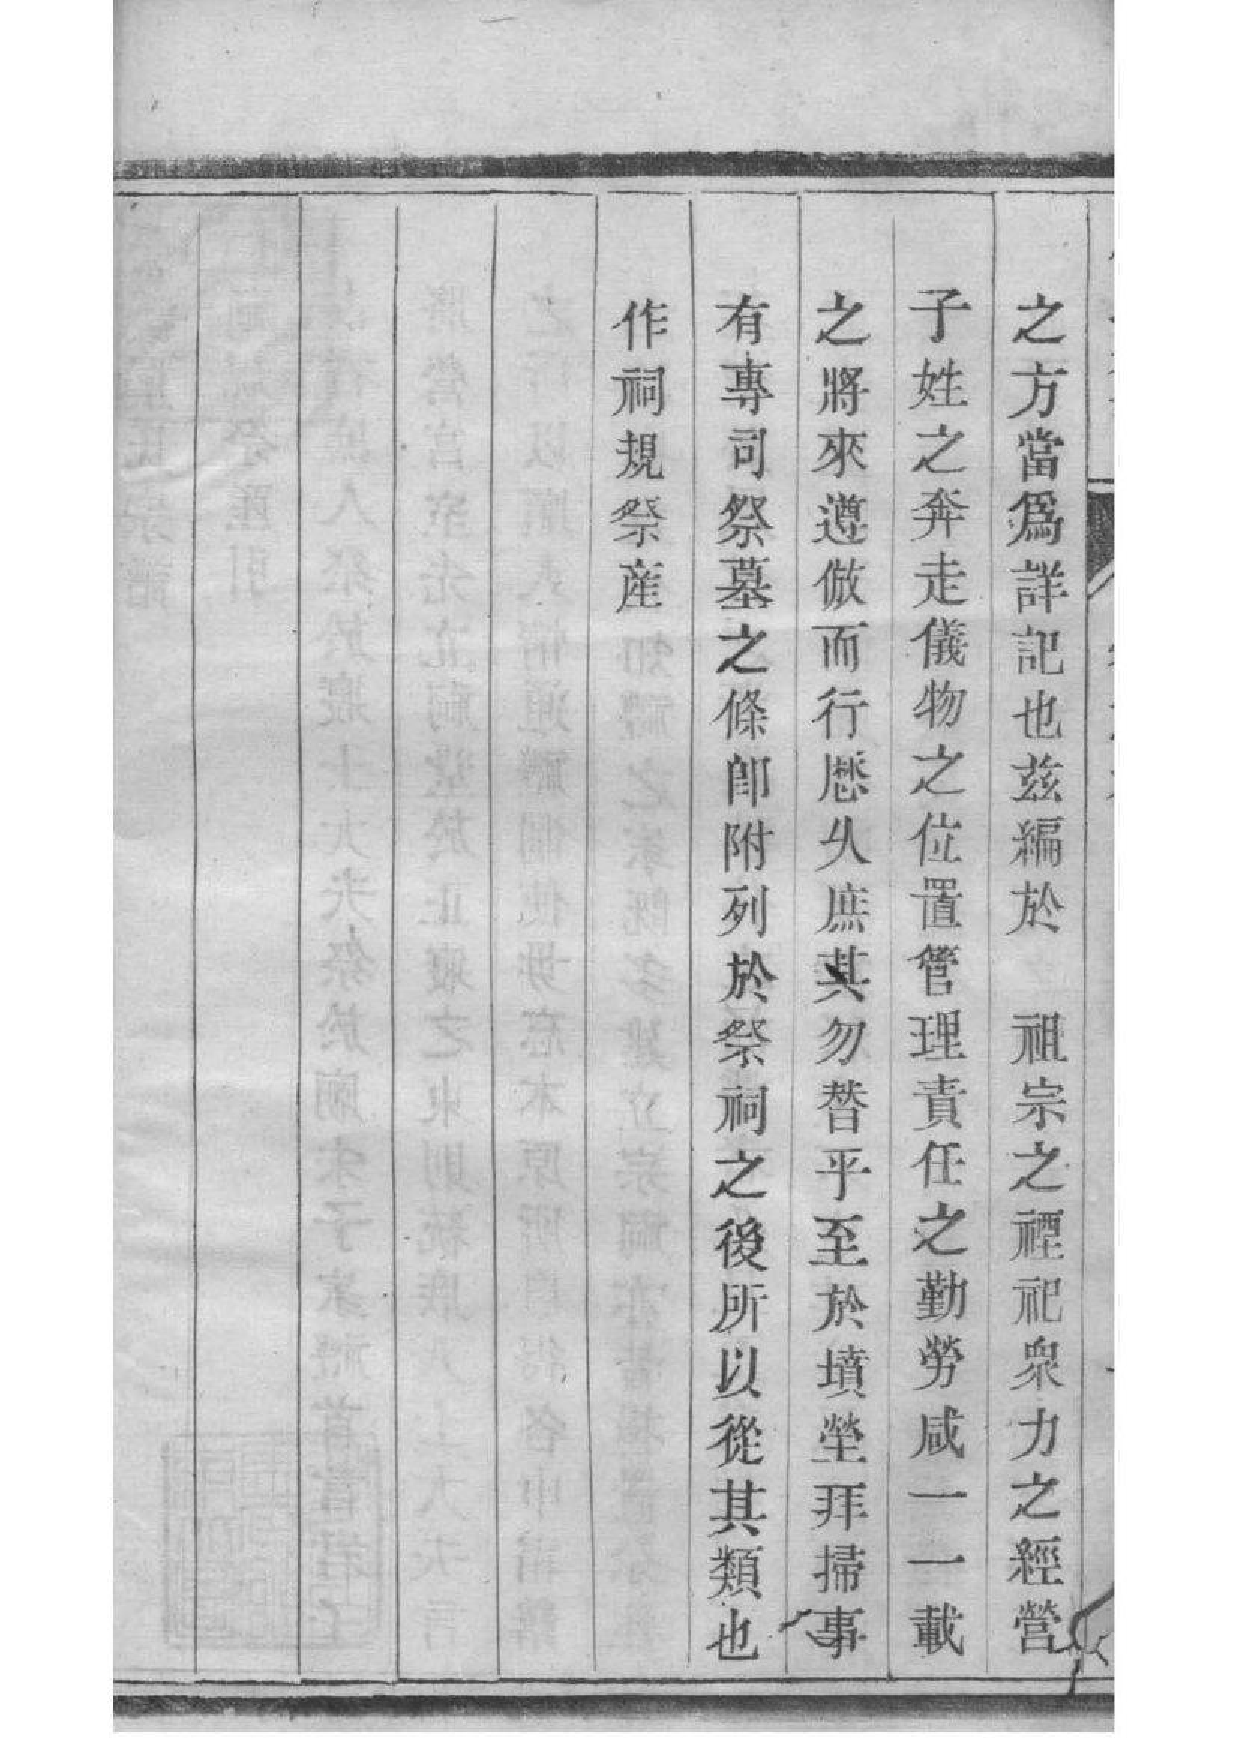 之方當爲詳記也茲編於　祖宗之禋祀衆力之經營
子姓之奔走儀物之位置管理責任之勤勞咸一一載
之將來遵倣而行厯久庶其勿替乎至於墳塋拜掃事
有專司祭墓之條卽附列於祭祠之後所以從其類也
作祠規祭産